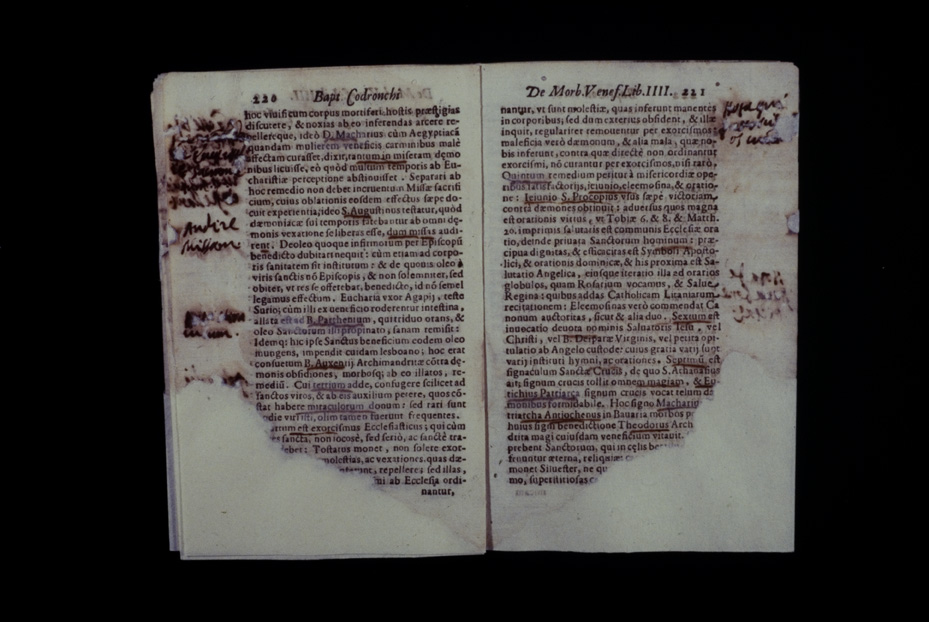 220 Bapt. Codronchi
hoc viuificum corpus mortiferi hostis præstigias
discutere, & noxias ab eo inferendas arcere re-
pellereque, ideò D. Macharius cùm Aegyptiacā
quandam mulierem veneficis carminibus malè
affectam curasset, dixit, tantum in miseram dęmo
nibus licuisse, eò quòd multum temporis ab Eu-
charistiæ perceptione abstinuisset. Separari ab
hoc remedio non debet incruentum Missæ sacrifi
cium, cuius oblationis eosdem effectus sæpe do-
cuit experientia; ideo S. Augustinus testatur, quòd
dæmoniacæ sui temporis fatebantur ab omni dę-
monis vexatione se liberas esse, dum missas audi-
rent. De oleo quoque infirmorum per Episcopū
benedicto dubitari nequit: cùm etiam ad corpo-
ris sanitatem sit institutum: & de quouis oleo à
viris sanctis nō Episcopis, & non solemniter, sed
obiter, vt res se offerebat, benedicto, id nō semel
legamus effectum. Eucharia vxor Agapij, teste
Surio, cùm illi ex beneficio roderentur intestina,
allata est ad B. Parthenium, qui triduo orans, &
oleo Sanctorum illi propinato, sanam remisit:
Idemq; hic ipse Sanctus beneficium eodem oleo
inungens, impendit cuidam lesboano; hoc erat
consuetum B. Auxentij Archimandritæ cōtra dę-
monis obsidiones, morbosq; ab eo illatos, re-
mediū. Cui tertium adde, confugere scilicet ad
sanctos viros, & ab eis auxilium petere, quos cō-
stat habere miraculorum donum: sed rari sunt
odie viri isti, olim tamen fuerunt frequentes.
artum est exorcismus Ecclesiasticus; qui cùm
es sancta, non iocosè, sed seriò, ac sanctè tra-
debet: Tostatus monet, non solere exor-
molestias, ac vexationes, quas dæ-
inferunt, repellere: sed illas,
ni ab Ecclesia ordi-
nantur,
Audire
missam
De Morb. Venef. Lib. IIII. 221
nantur, vt sunt molestiæ, quas inferunt manentes
in corporibus, sed dum exterius obsident, & illæ
inquit, regulariter remouentur per exorcismos
maleficia verò dæmonum, & alia mala, quæ no-
bis inferunt, contra quæ directè non ordinantur
exorcismi, nō curantur per exorcismos, nisi rarò,
Quintum remedium petitur à misericordiæ ope-
ribus satisfactorijs, ieiunio, eleemosina, & oratio-
ne: Ieiunio S. Procopius vsus sæpè victoriam
contra dæmones obtinuit: aduersus quos magna
est orationis virtus, vt Tobiæ 6. & 8. & Matth.
20. imprimis salutaris est communis Ecclesiæ ora
tio, deinde priuata Sanctorum hominum: præ-
cipua dignitas, & efficacitas est Symboli Aposto-
lici, & orationis dominicæ, & his proxima est Sa-
lutatio Angelica, eiusque iteratio illa ad orarios
globulos, quam Rosarium vocamus, & Salue
Regina: quibus addas Catholicam Litaniarum
recitationem: Eleemosinas verò commendat Ca
nonum auctoritas, sicut & alia duo. Sextum est
inuocatio deuota nominis Saluatoris Iesu, vel
Christi, vel B. Deiparæ Virginis, vel petita opi-
tulatio ab Angelo custode: cuius gratia varij sunt
varij instituti hymni, ac orationes. Septimū est
signaculum Sanctæ Crucis, de quo S. Athanasius
ait; signum crucis tollit omnem magiam, & Eu-
tichius Patriarca signum crucis vocat telum dæ
monibus formidabile. Hoc signo Macharius
triarcha Antiochenus in Bauaria morbos p
huius signi benedictione Theodorus Arch
drita magi cuiusdam veneficium vitauit.
prebent Sanctorum, qui in cęlis be
fruuntur æterna, reliquiæ: c
monet Siluester, ne qu
mo, superstitiosas c